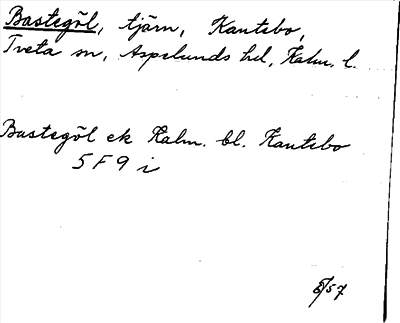 Bastegöl, tjärn, Kantebo,
Tveta sn, Aspelands hd, Kalm. l.
Bastegöl ek Kalm. bl. Kantebo
5 F 9 i
8/57